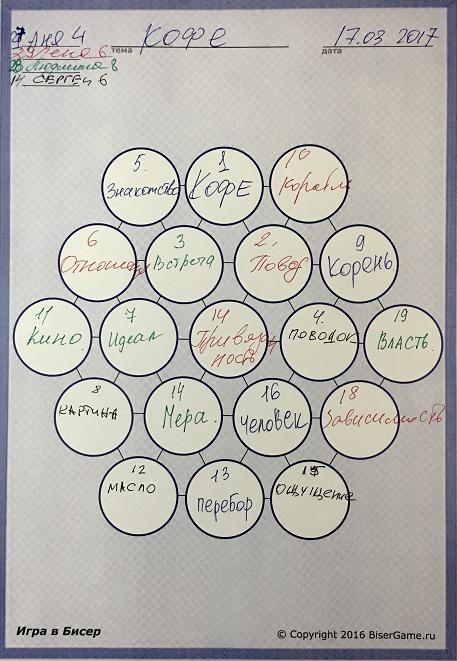 Аня 4 тема КОФЕ дата 17.03 2017
Лена 6
Людмила 8
14 СЕРГЕЙ 6
5. 1 10
Знакомство КОФЕ Корабль
6 3 2. 9
Отношения Встреча Повод Корень
11 7 14 4. 19
Кино. Идеал Привязанность ПОВОДОК ВЛАСТЬ.
8 14 16 18
КАРТИНА Мера. Человек Зависимость
12 13 15
МАСЛО перебор ОЩУЩЕНИЕ
Игра в Бисер © Copyright 2016 BiserGame.ru